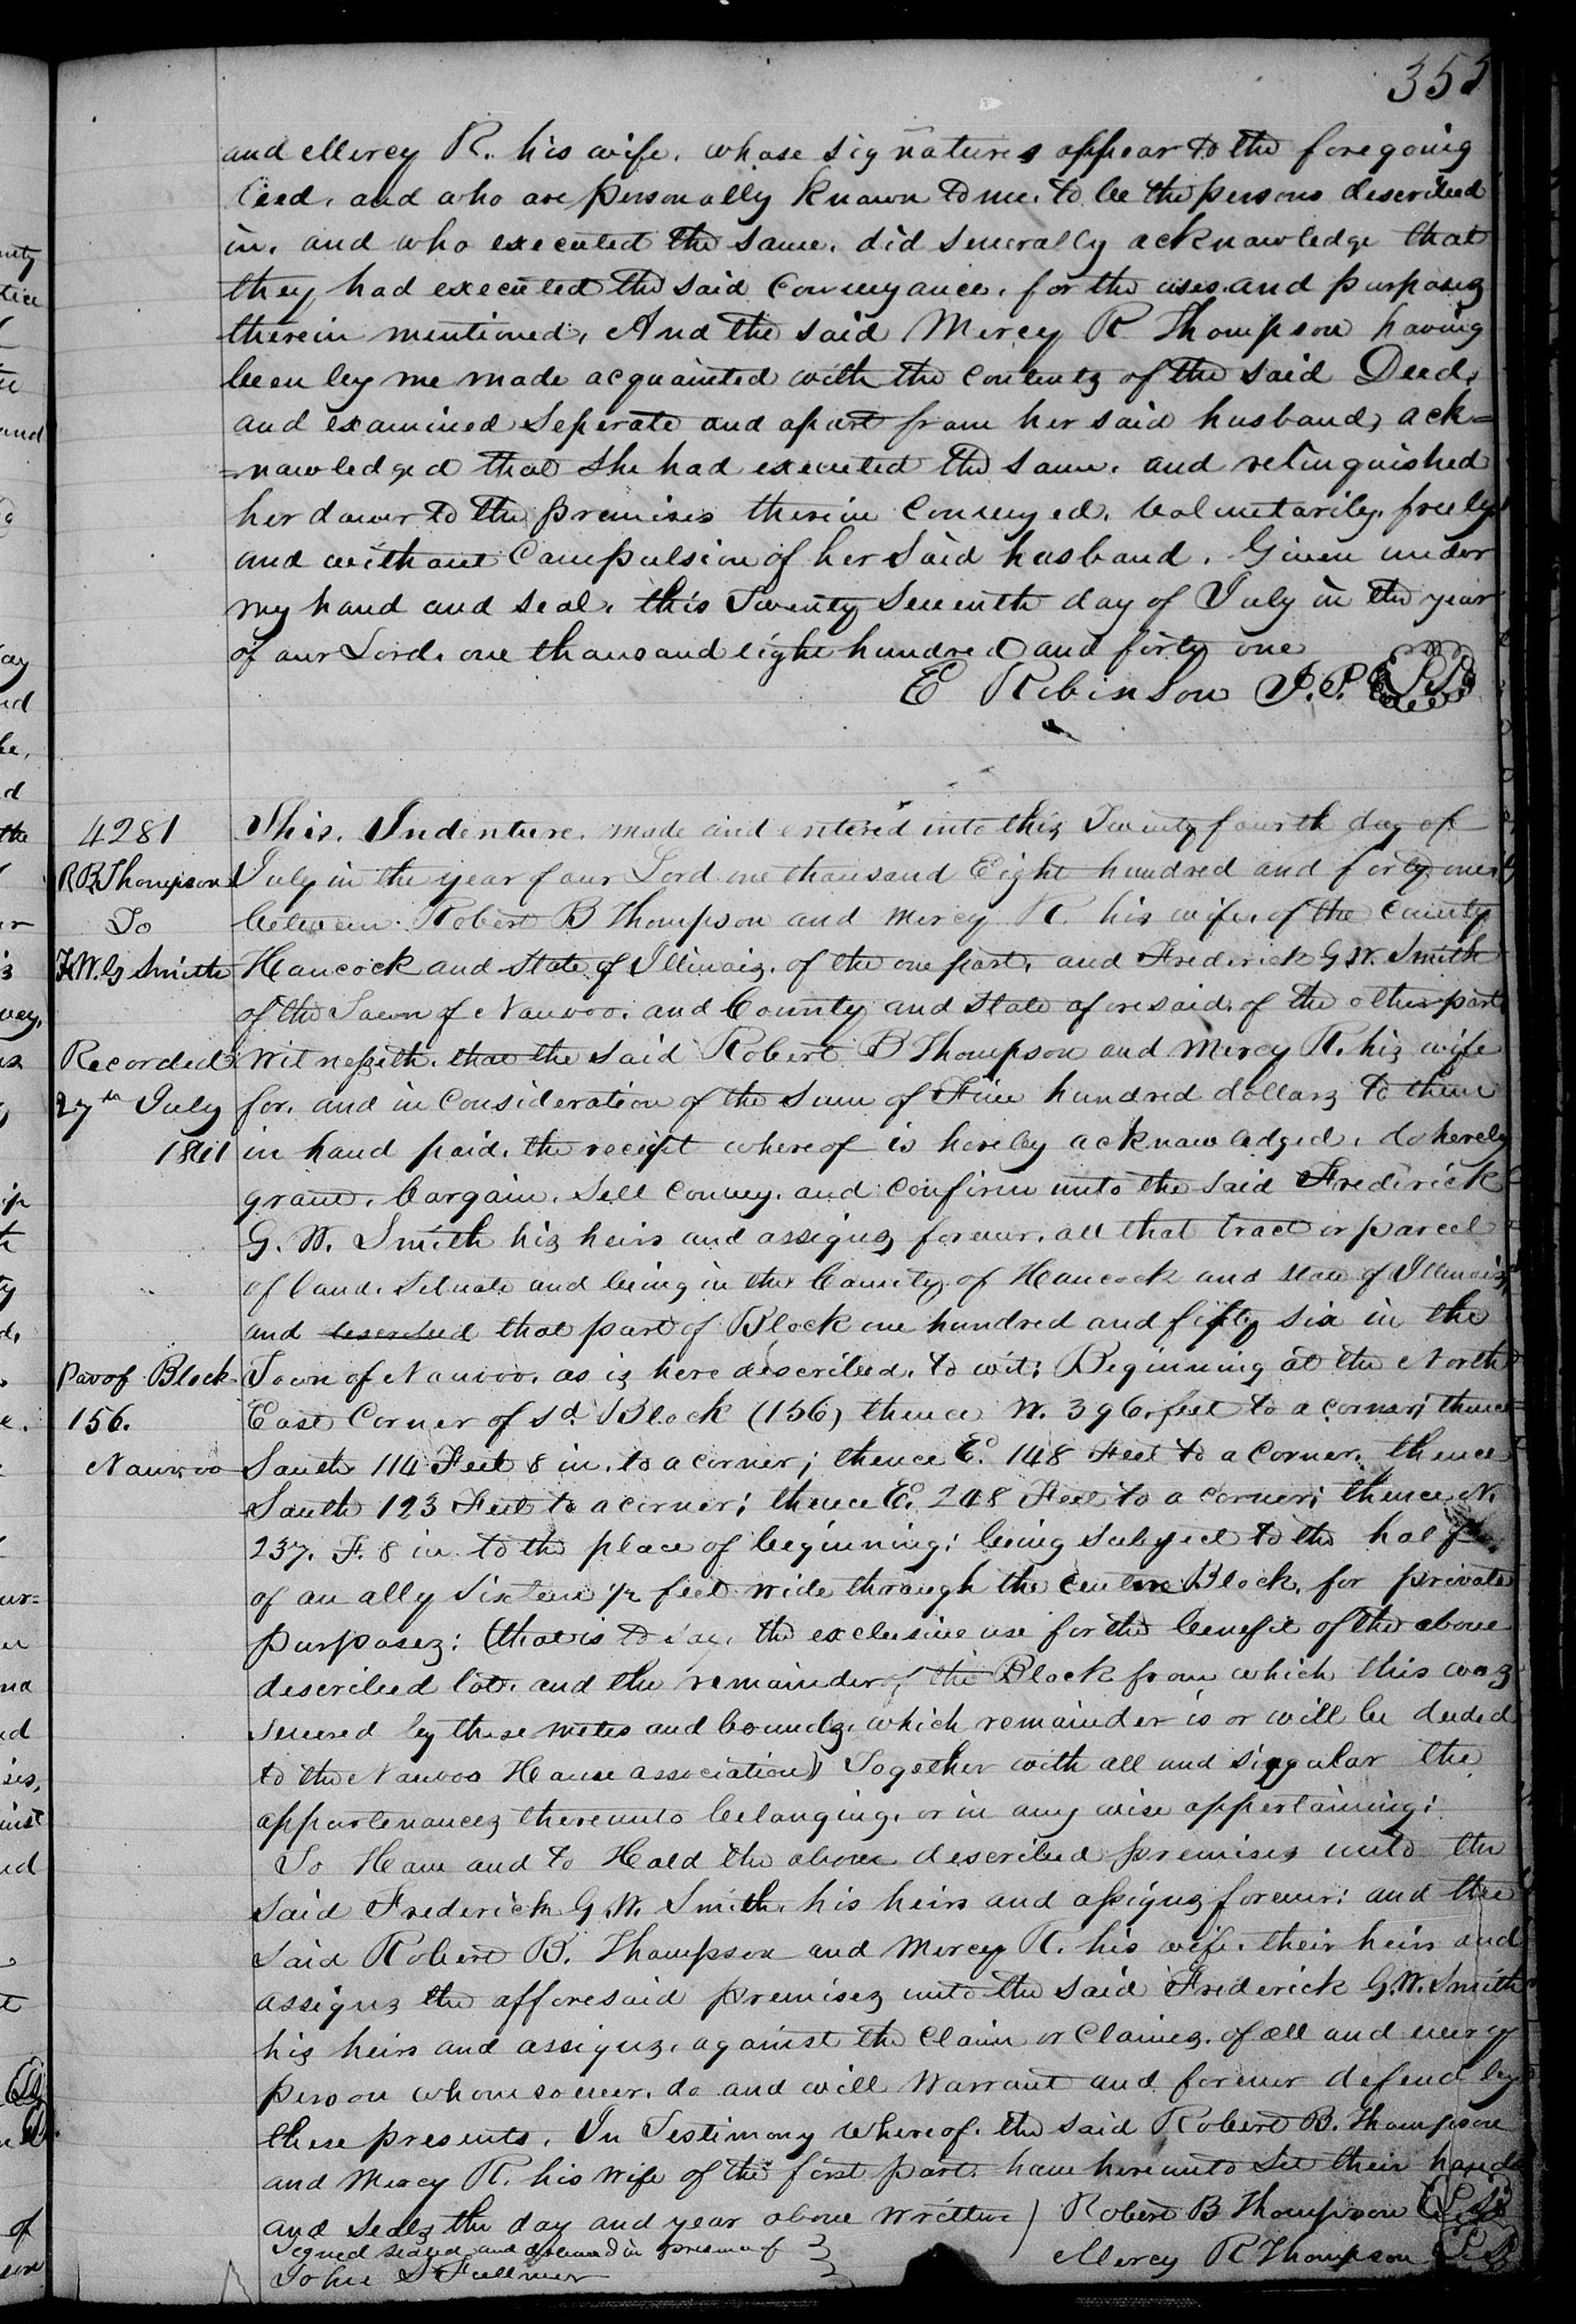 353
and Mercy R. his wife, whose signatures appear to the foregoing
Deed, and who are personally known to me, to be the persons described
in, and who executed the same, did severally acknowledge that
they had executed the said Conveyance, for the uses and purposes
therein mentioned, And the said Mercy R Thompson having
been by me made acquainted with the contents of the said Deed,
and examined Seperate and apart from her said husband, ack=
=nowledged that She had executed the same, and relinquished
her dower to the premises therein Conveyed, voluntarily, freely
and without Compulsion of her Said husband. Given under
my hand and seal, this Twenty Seventh day of July in the year
of our Lord, one thousand eight hundred and forty one
E Robinson J.P. L.S.
4281
R B Thompson
To
F.W.G Smith
Recorded
27th July
1841
Par of Block
156.
Nauvoo
This, Indenture, made and entered into this Twenty fourth day of
July in the year of our Lord one thousand Eight hundred and forty one
between Robert B Thompson and Mercy R. his wife, of the County
Hancock and State of Illinois, of the one part, and Frederick G. W. Smith
of the Town of Nauvoo, and County and State aforesaid, of the other part
Witnesseth, that the said Robert B Thompson and Mercy R. his wife
for, and in Consideration of the Sum of Five hundred dollars to them
in hand paid, the receipt whereof is hereby acknowledged, do hereby
grant, bargain, Sell Convey, and Confirm unto the said Frederick
G. W. Smith his heirs and assigns forever, all that tract or parcel
of land, Situate and being in the County of Hancock and State of Illinois,
and described that part of Block one hundred and fifty six in the
Town of Nauvoo, as is here described, to wit: Beginning at the North
East Corner of sd Block (156) thence W. 396. feet to a corner; thence
South 114 Feet 8 in. to a corner; thence E. 148 Feet to a corner, thence
South 123 Feet to a corner; thence E. 248 Feet to a corner; thence N.
237. F. 8 in to the place of beginning; being subject to the half
of an ally Sixteen 1/2 feet wide through the Centre Block, for private
purposes; (that is to say, the exclusive use for the benefit of the above
described lot, and the remainder of the Block from which this was
severed by these metes and bounds, which remainder is or will be deeded
to the Nauvoo House association) Together with all and Singular the
appurtenances thereunto belonging, or in any wise appertaining;
To Have and to Hold the above described premises unto the
said Frederick G. W. Smith, his heirs and assigns forever; and the
Said Robert B. Thompson and Mercy R. his wife, their heirs and
assigns the afforesaid premises unto the said Frederick G. W. Smith
his heirs and assigns, against the Claim or Claims, of all and every
person whomsoever, do and will Warrant and forever defend by
these presents, In Testimony whereof, the said Robert B. Thompson
and Mercy R. his wife of the first part, have hereunto Set their hands
and Seals the day and year above written) Robert B Thompson L.S.
Signed sealed and delivered in presence of
John S Fullmer
Mercy R Thompson L.S.